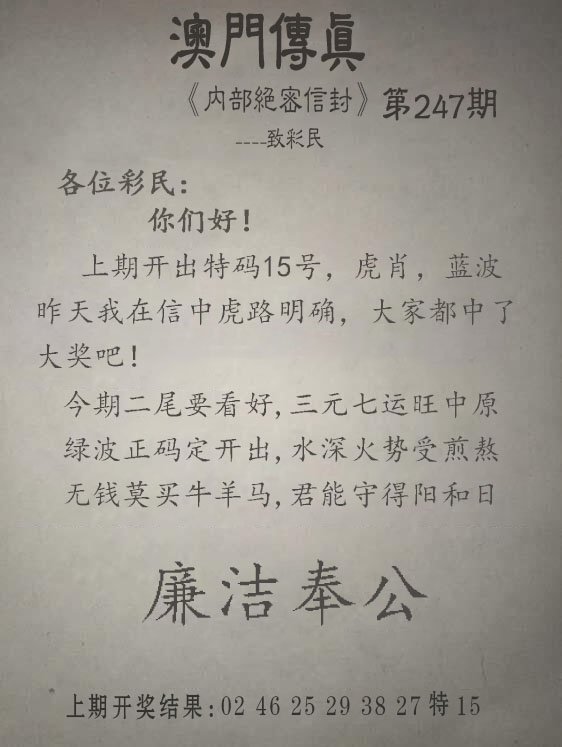 澳門傳真
《内部絕密信封》第247期
----致彩民
各位彩民:
你们好!
上期开出特码15号，虎肖，蓝波
昨天我在信中虎路明确，大家都中了
大奖吧!
今期二尾要看好,三元七运旺中原
绿波正码定开出,水深火势受煎熬
无钱莫买牛羊马,君能守得阳和日
廉洁奉公
上期开奖结果:02 46 25 29 38 27特15